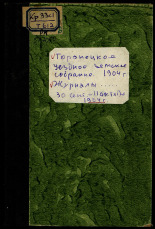 Кр 33с1
Т 613
Торопецкое
уездное земское
собрание. 1904 г.
Журналы
30 сент.
1904 г.